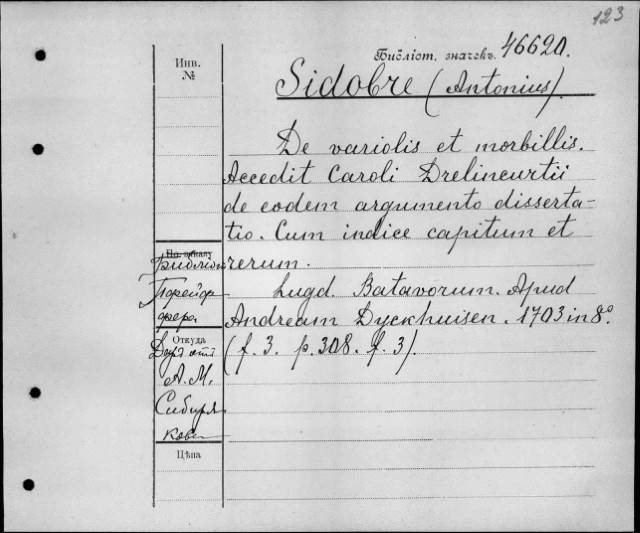 123
Библіот. значекъ. 46620.
Инв.
№
Sidobre (Antonius).
De variolis et morbillis.
Accedit Caroli Drelincurtii
de eodem argumento disserta-
tio. Cum indice capitum et
rerum.
Lugd. Batavorum. Apud
Andream Dyckhuisen. 1703 in 8º.
(f. 3. p. 308. f. 3).
По заказу
Откуда
Даръ отъ
А. М.
Сибиря
кова
Цѣна